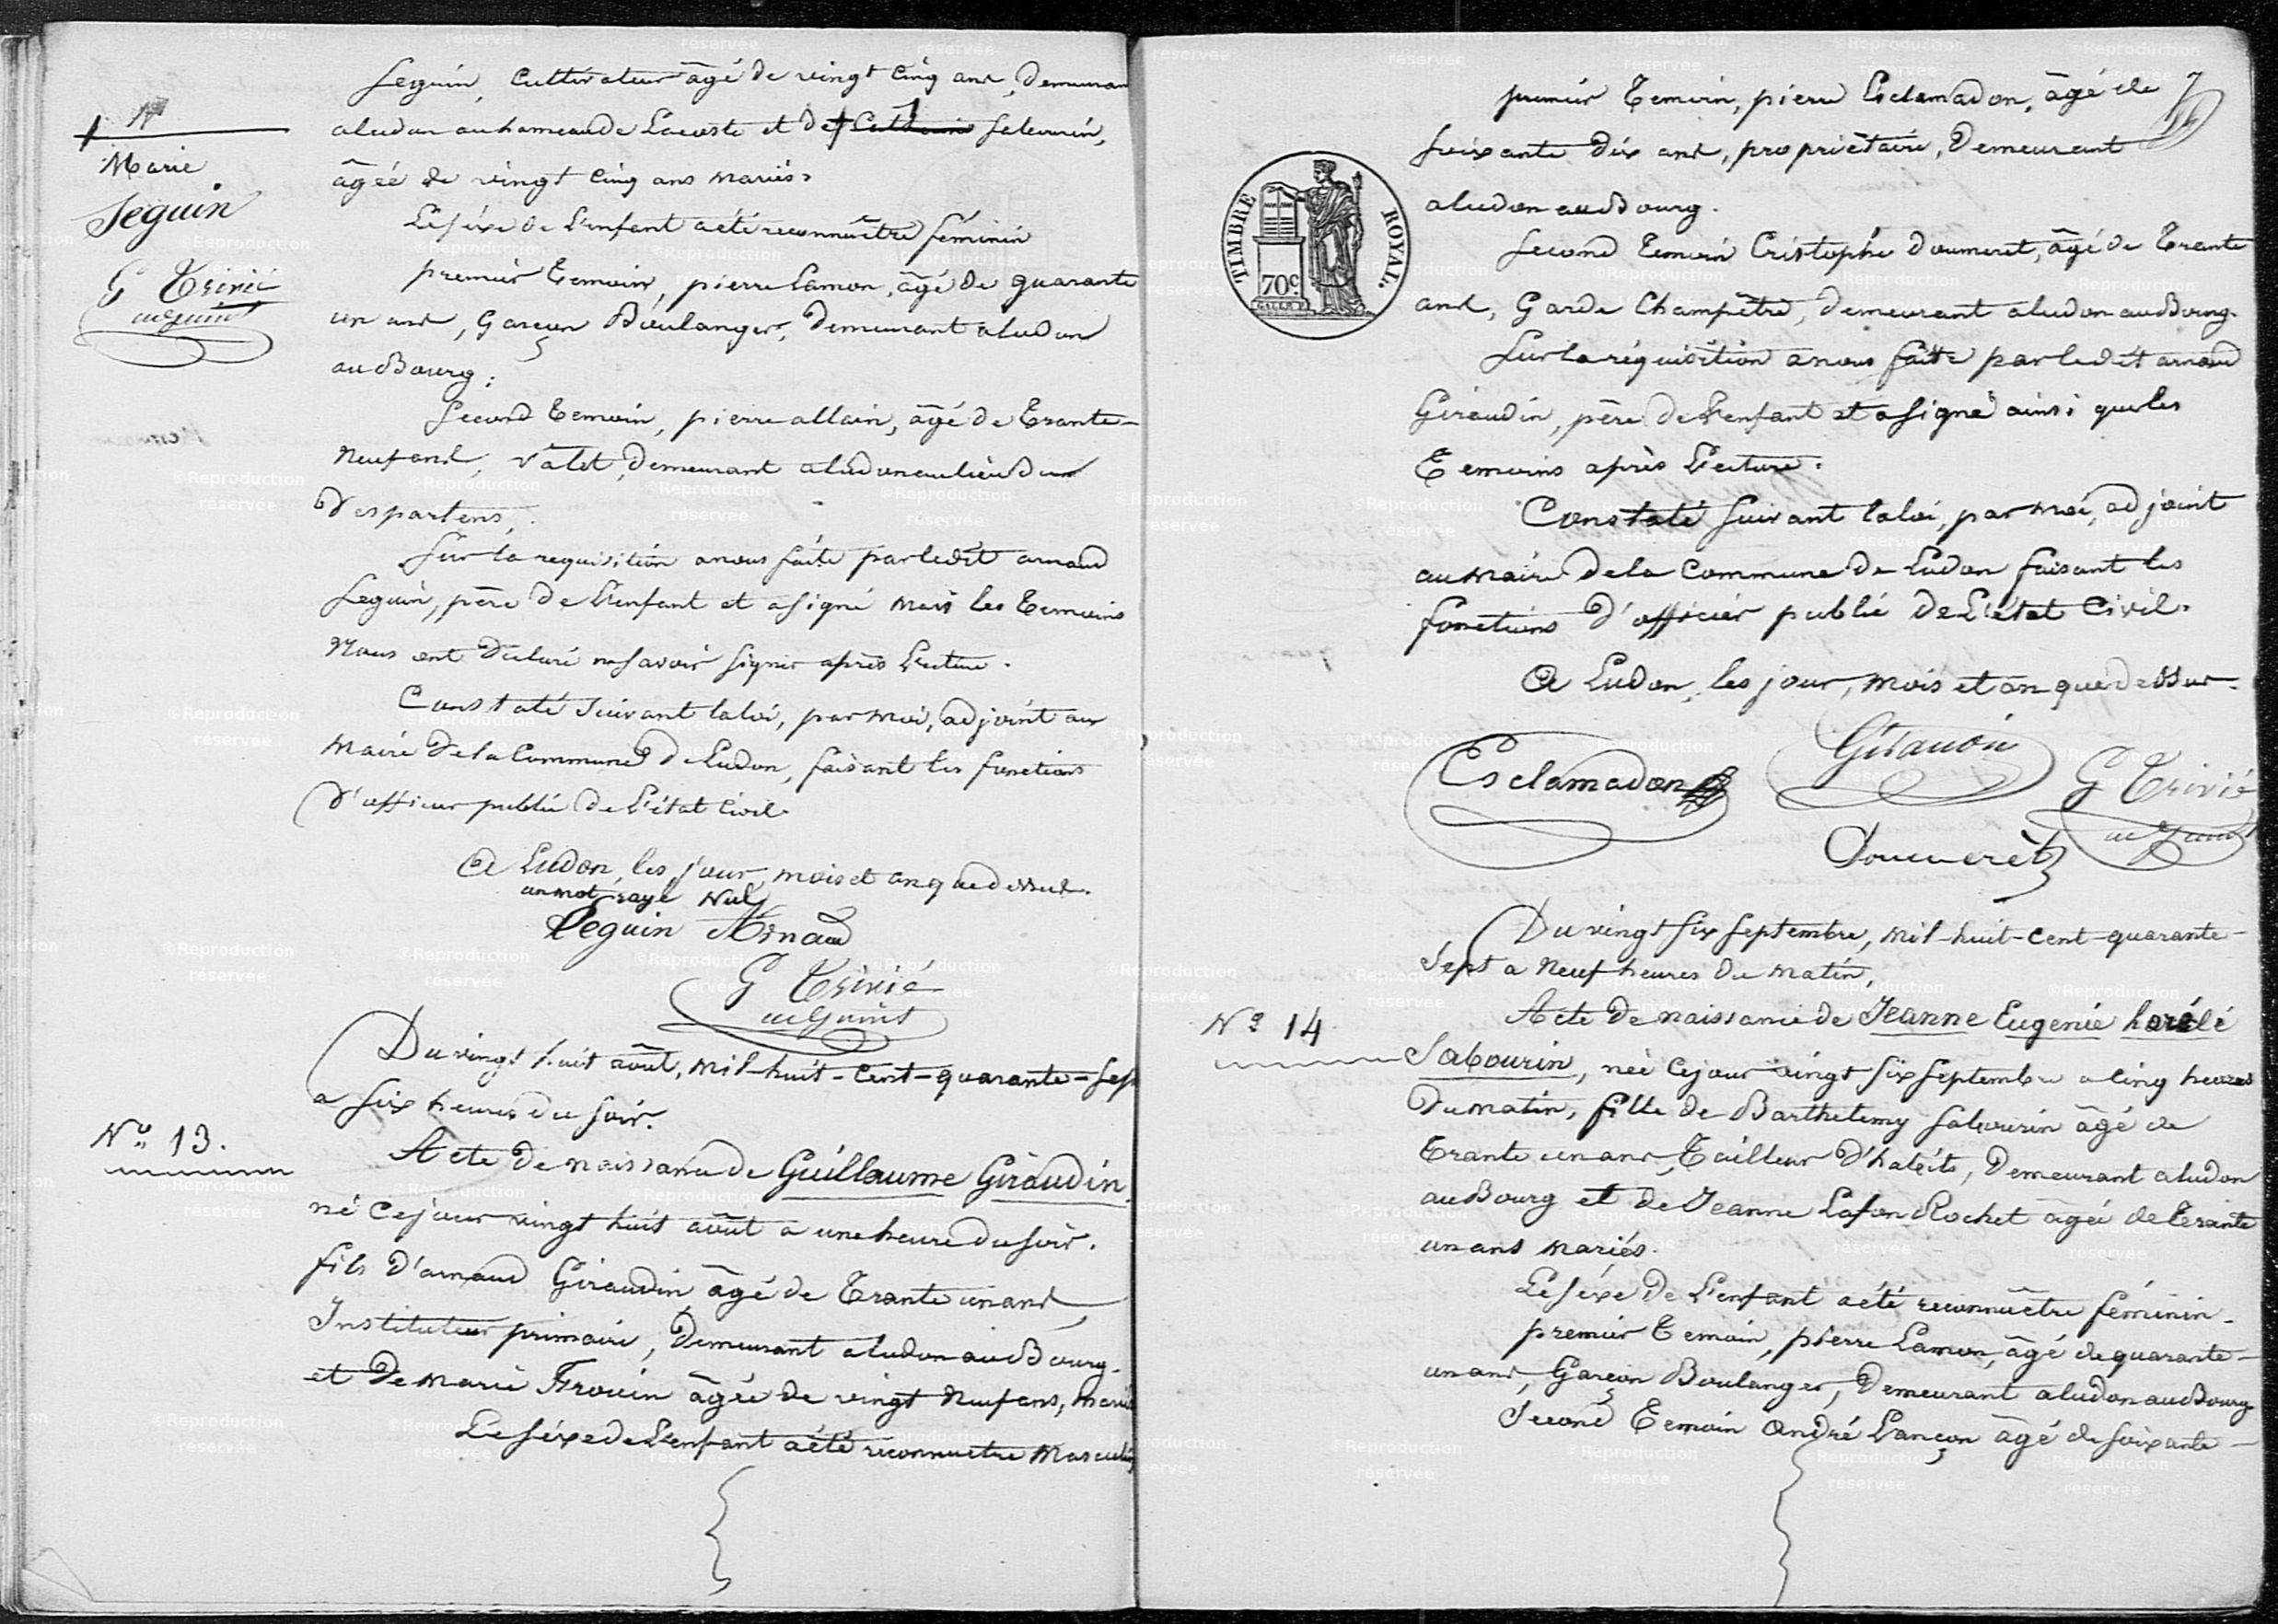 Seguin, Cultivateur âgé de vingt Cinq ans, Demeurant
aludon au hameau de Lacoste et de Sabourin,
âgée de vingt Cinq ans mariés.
Le séxe de L'enfant aété reconnu être féminin
premier Temoin, pierre Lamon, âgé de quarante
un ans, Garçon Boulanger, Demeurant aludon
au Bourg;
Second temoin, pierre allain, âgé de Trante-
Neuf ans, Valet, Demeurant aludon au lieu
Despartens,
Sur la requisition anous faite par ledit arnaud
Seguin, père de L'enfant et a signé mais les Temoins
Nous ont déclaré ne savoir signer après Lecture.
Constaté suivant la loi, par moi, adjoint au
Maire de la Commune de Ludon, faisant les fonctions
D'officier public de L'état Civil.
A Ludon, les jour, mois et an que dessus.
un mot rayé Nul
Seguin Arnaud
G Trivié
adjoint
1
Marie
Seguin
G Trivié
adjoint
Du vingt huit août, mil-huit-Cent-quarante-Sept
a six heures du soir.
N° 13.
Acte de naissance de Guillaume Giraudin,
né Cejour vingt huit août a une heure du soir.
fils D'arnaud Giraudin âgé de Trante un ans
Instituteur primaire, Demeurant aludon au Bourg.
et de marie Frouin âgée de vingt Neuf ans, mariés
Le séxe de L'enfant aété reconnu être Masculin
7
premier Temoin, pierre Esclamadon, âgé de
Soixante Dix ans, propriétaire, Demeurant
aludon au Bourg.
TIMBRE ROYAL.
70c.
Second Temoin Cristophe Doumeret, âgé de Trante
ans, Garde Champêtre, Demeurant aludon au Bourg.
Sur la réquisition anous faite par ledit arnaud
Giraudin, père de L'enfant et a signé ainsi que les
Temoins après Lecture.
Constaté suivant la loi, par moi, adjoint
au maire de la Commune de Ludon faisant les
fonctions D'officier public de L'état Civil.
A Ludon, les jour, mois et an que dessus.
Esclamadon Giraudin G Trivié
adjoint
Doumerèt
Du vingt six septembre, mil-huit-Cent-quarante-
Sept a Neuf heures du matin,
N° 14
Acte de naissance de Jeanne Eugenie
Sabourin, née Cejour vingt six septembre a Cinq heures
Du matin, fille de Barthelemy Sabourin âgé de
Trante un ans, Tailleur D'habits, Demeurant aludon
au Bourg et de Jeanne Lafon Rochet agée de Trante
un ans mariés.
Le séxe de L'enfant aété reconnu être féminin-
premier Temoin, pierre Lamon, âgé de quarante-
un ans, Garçon Boulanger, Demeurant aludon au Bourg
Second Temoin André Lançon âgé de soixante-
©Reproduction
réservée